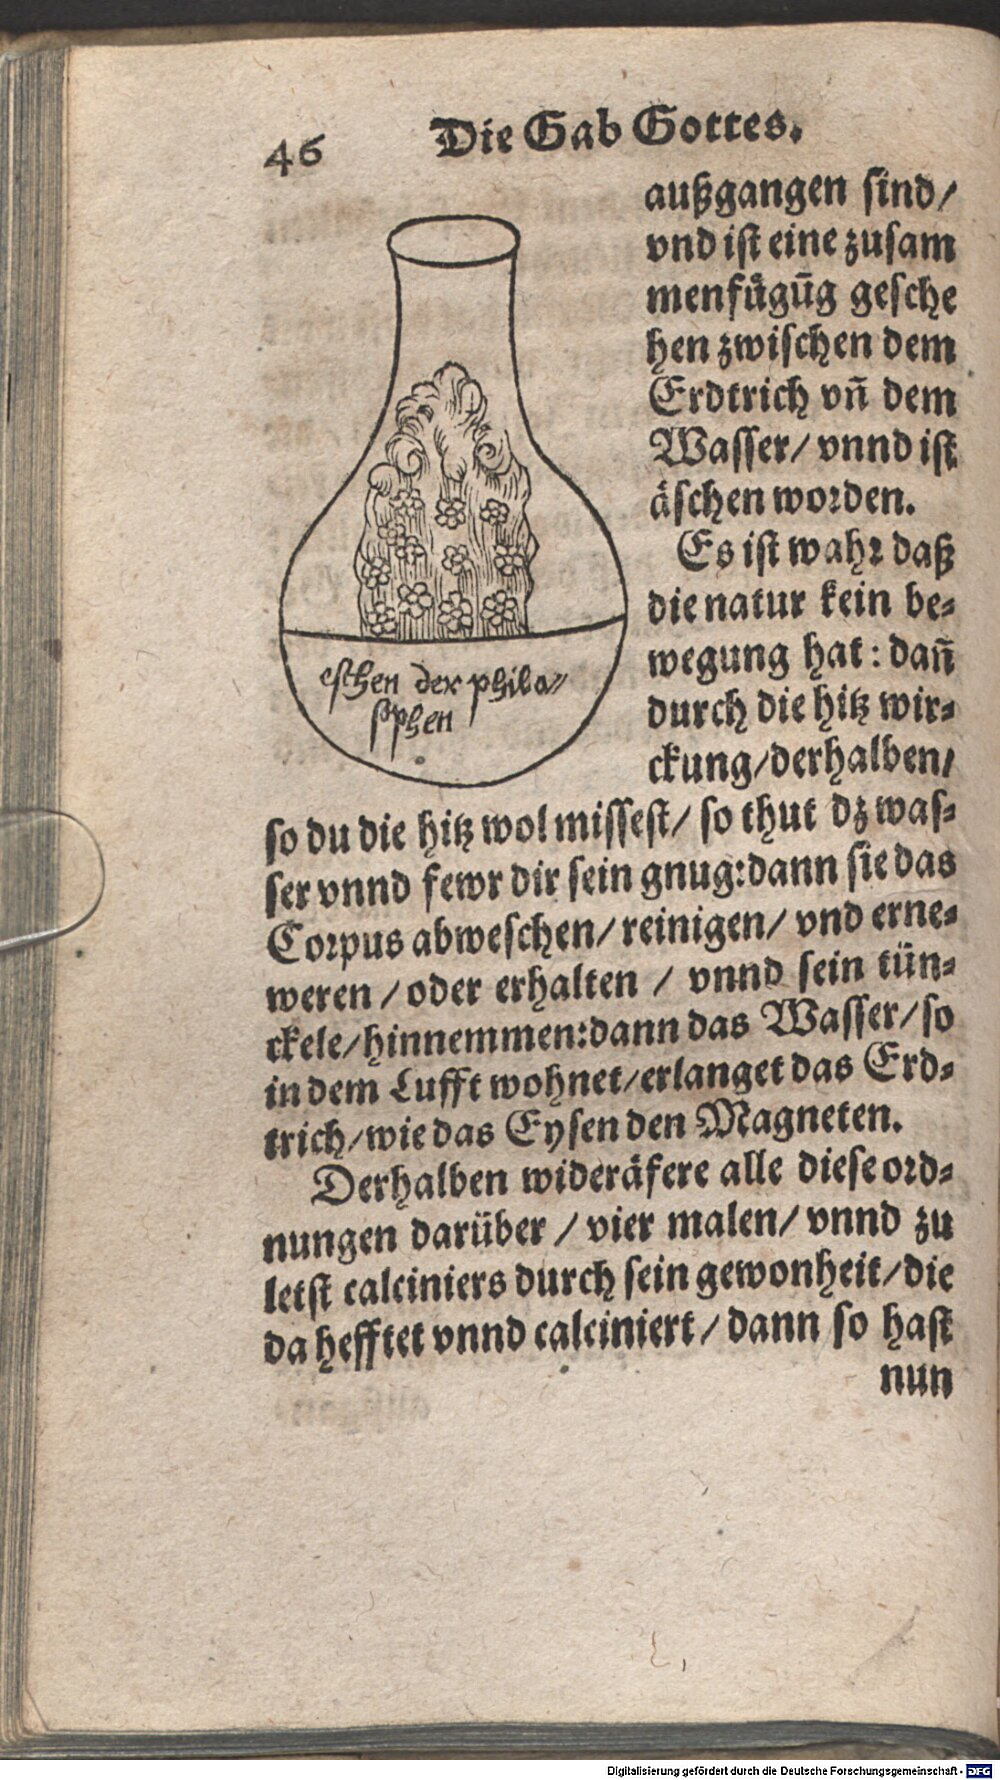 46 Die Gab Gottes.
außgangen sind/
vnd ist eine zusam
menfügūg gesche
hen zwischen dem
Erdtrich vñ dem
Wasser/ vnnd ist
äschen worden.
Es ist wahr daß
die natur kein be=
wegung hat: dañ
durch die hitz wir=
ckung/derhalben/
eschen der philo//
sophen
so du die hitz wol missest/ so thut dz was=
ser vnnd fewr dir sein gnug:dann sie das
Corpus abweschen/ reinigen/ vnd erne=
weren / oder erhalten / vnnd sein tün=
ckele/hinnemmen:dann das Wasser/ so
in dem Lufft wohnet/erlanget das Erd=
trich/wie das Eysen den Magneten.
Derhalben wideräfere alle diese ord=
nungen darüber / vier malen/ vnnd zu
letst calciniers durch sein gewonheit/die
da hefftet vnnd calciniert/ dann so hast
nun
Digitalisierung gefördert durch die Deutsche Forschungsgemeinschaft - DFG